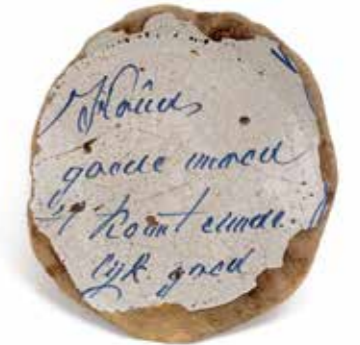 Houd
goede moed
't komt einde
lijk goed